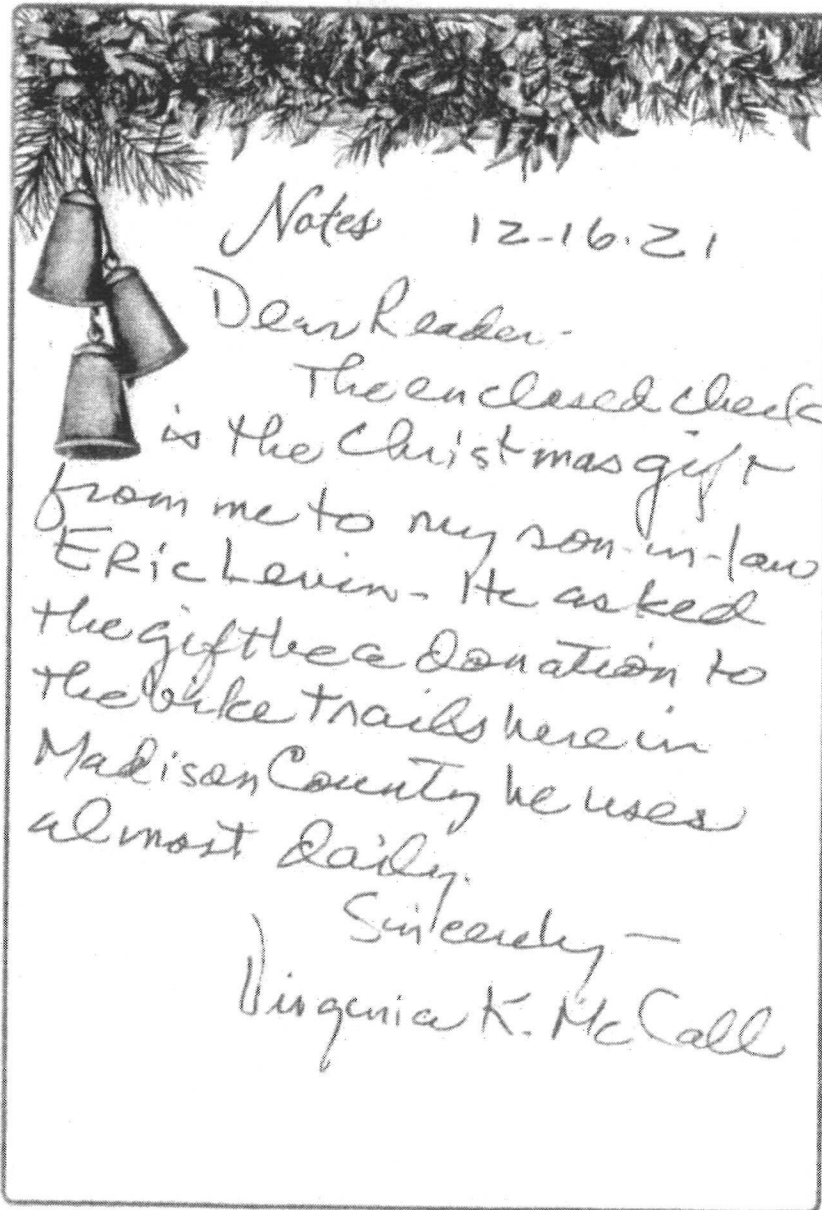 Notes 12-16-21
Dear Reader-
The enclosed check
is the Christmas gift
from me to my son-in-law
ERic Levin- He asked
the gift be a donation to
the bike trails here in
Madison County he uses
almost daily.
Sincerely-
Virginia K. McCall